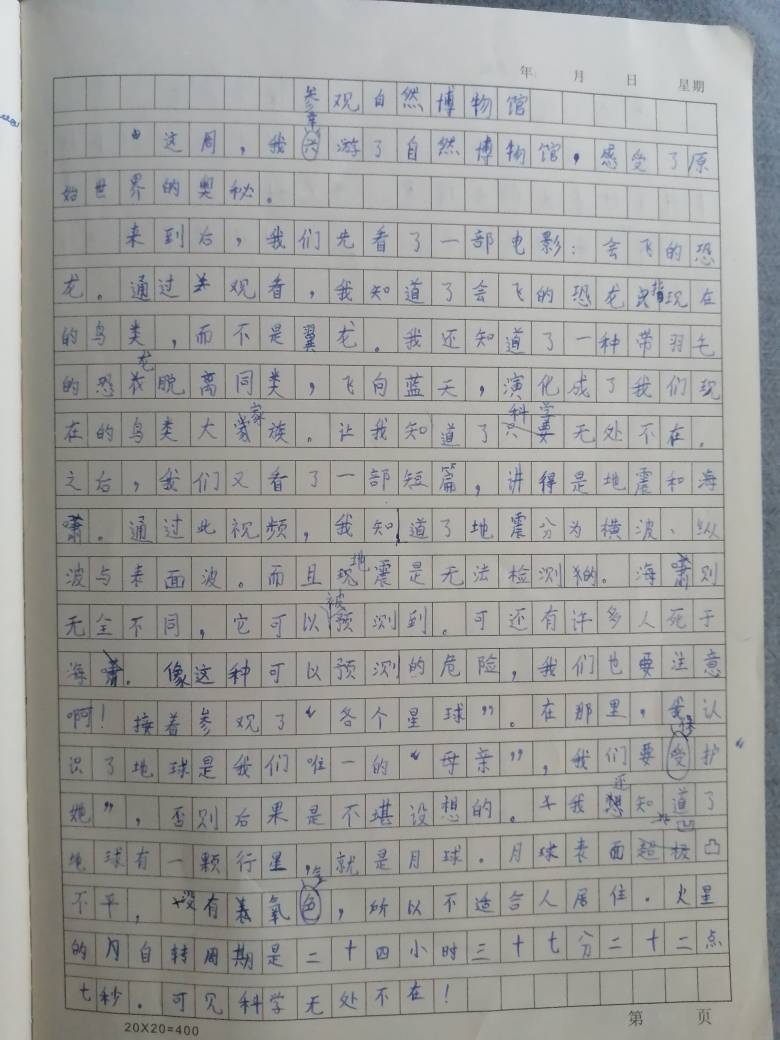 年 月 日 星期
参观自然博物馆
这周，我有幸游了自然博物馆，感受了原
始世界的奥秘。
来到后，我们先看了一部电影：会飞的恐
龙。通过观看，我知道了会飞的恐龙是指现在
的鸟类，而不是翼龙。我还知道了一种带羽毛
的恐龙脱离同类，飞向蓝天，演化成了我们现
在的鸟类大家族。让我知道了科学无处不在。
之后，我们又看了一部短篇，讲得是地震和海
啸。通过此视频，我知道了地震分为横波、纵
波与表面波。而且地震是无法检测的。海啸则
无全不同，它可以被预测到。可还有许多人死于
海啸。像这种可以预测的危险，我们也要注意
啊！接着参观了“各个星球”。在那里，我认
识了地球是我们唯一的“母亲”，我们要保护“
她”，否则后果是不堪设想的。我还知道了
地球有一颗行星，就是月球。月球表面凹凸
不平，没有氧气，所以不适合人居住。火星
的自转周期是二十四小时三十七分二十二点
七秒。可见科学无处不在！
20X20=400
第 页